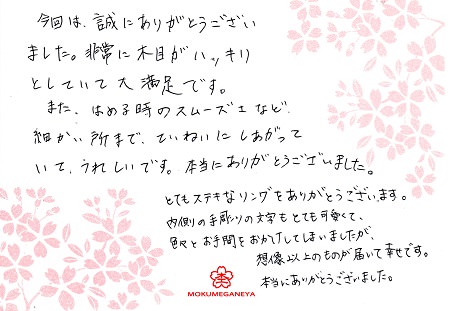 今回は、誠にありがとうござい
ました。非常に木目がハッキリ
としていて大満足です。
また、はめる時のスムーズさなど、
細かい所まで、ていねいにしあがって
いて、うれしいです。本当にありがとうございました。
とてもステキなリングをありがとうございます。
内側の手彫りの文字もとても可愛くて、
色々とお手間をおかけしてしまいましたが、
想像以上のものが届いて幸せです。
本当にありがとうございました。
MOKUMEGANEYA